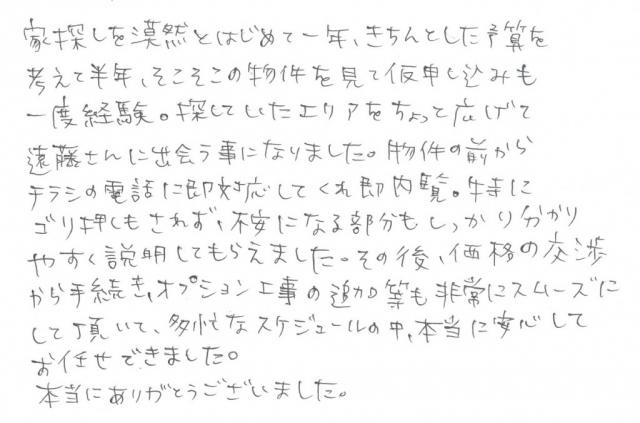 家探しを漠然とはじめて一年、きちんとした予算を
考えて半年、そこそこの物件を見て仮申し込みも
一度経験。探していたエリアをちょっと広げて
遠藤さんに出会う事になりました。物件の前から
チラシの電話に即対応してくれ即内覧。特に
ゴリ押しもされず、不安になる部分もしっかり分かり
やすく説明してもらえました。その後、価格の交渉
から手続き、オプション工事の追加等も非常にスムーズに
して頂いて、多忙なスケジュールの中、本当に安心して
お任せできました。
本当にありがとうございました。